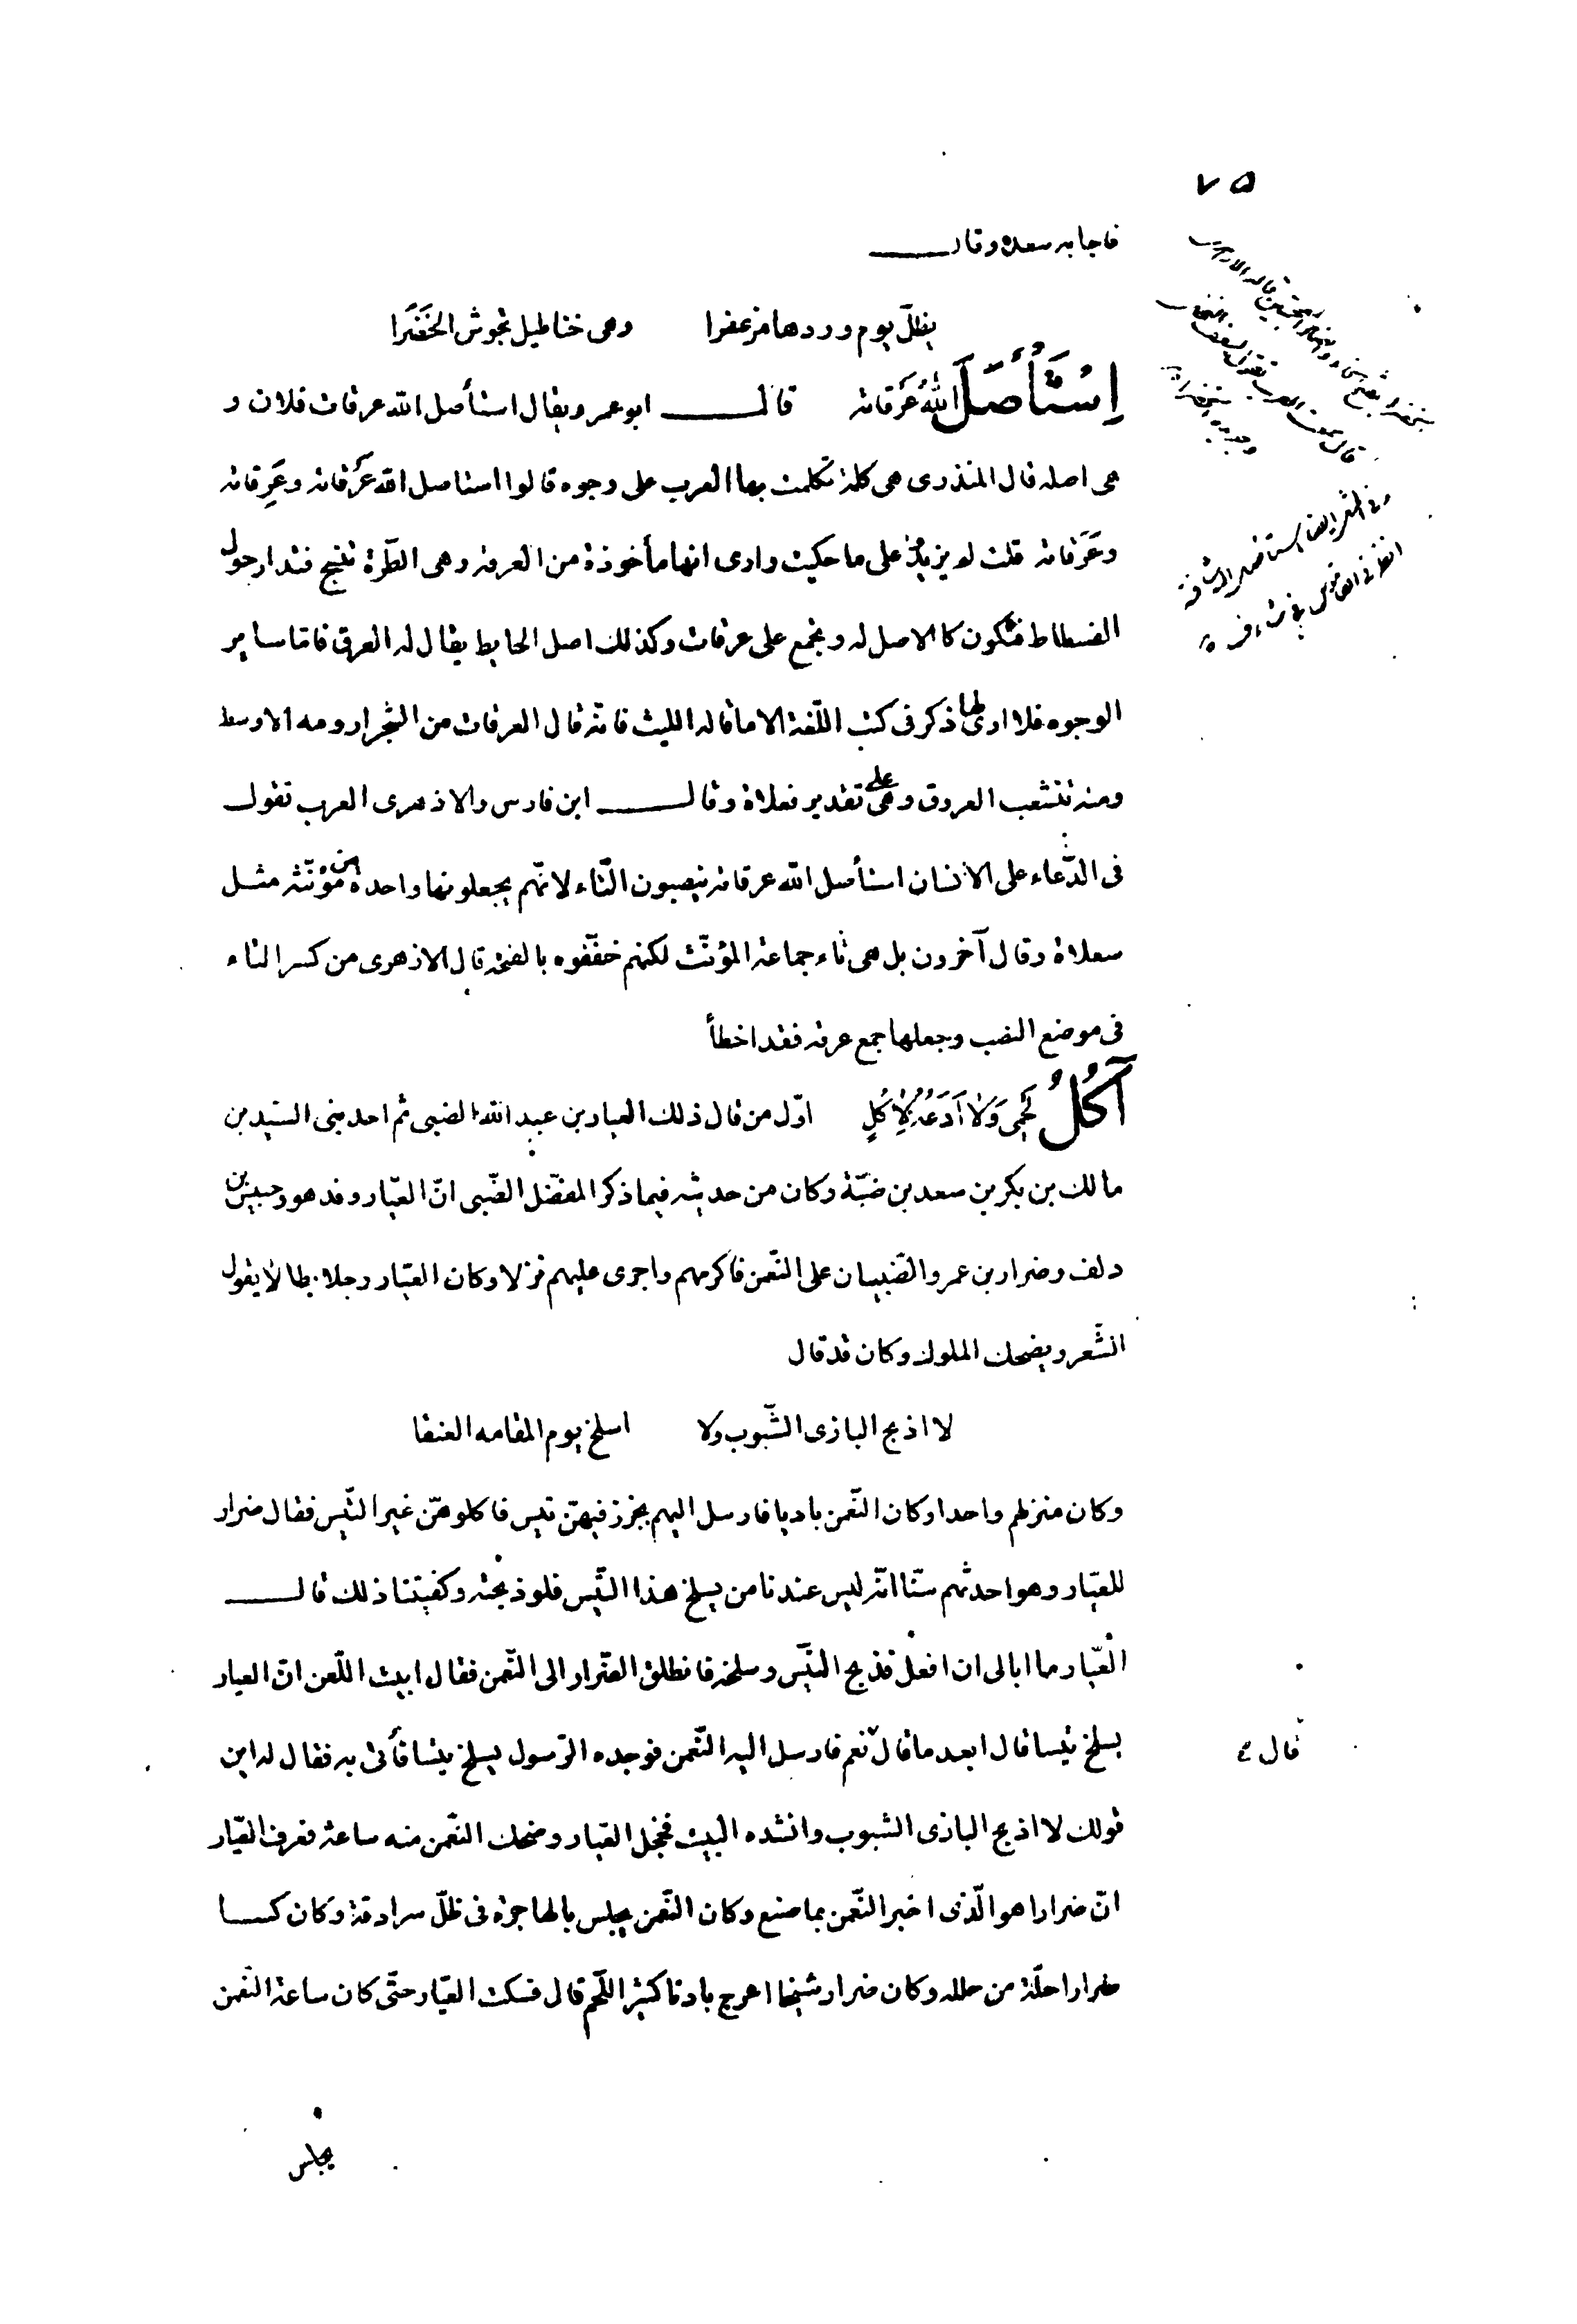 ٧٥
فاجابه سعد وقال
يظلّ يوم وردها مزعفرا وهى خناطيل تجوش الخَضَرا
اِسْتَأْصَلَ اللّٰهُ عَرْقاته قال ابو عمرو يقال استأصل الله عرقات فلان و
هى اصله قال المنذرى هى كلمة تكلمت بها العرب على وجوه قالوا استاصل الله عَرْقاته وعَرِقاته
وعَرَقاته قلت لم يزيدنى على ما حكيت وارى انها مأخوذة من العرقة وهى الطّرة تنسج فتدار حول
الفسطاط فتكون كالاصل له وتجمع على عرقات وكذلك اصل الحايط يقال له العرق فاما ساير
الوجوه فلا ارى لها ذكر فى كتب اللّغة الا ما قاله الليث فانّه قال العرقات من الشجر ارومه الاوسط
ومنه تنشعب العروق وهى على تقدير فعلاة وقال ابن فارس والازهرى العرب تقول
فى الدّعاء على الانسان استأصل الله عرقاته ينصبون التّاء لانّهم يجعلونها واحدة مؤنّثه مثل
سعلاة وقال آخرون بل هى تاء جماعة المؤنّث لكنهم خفّفوه بالفتحة قال الازهرى من كسر التاء
فى موضع النصب وجعلها جمع عرقه فقد اخطأ
آكُلُ لَحْمِى وَلَا اَدَعُهُ لِاٰكِلٍ اوّل من قال ذلك العيار بن عبد الله الضبى ثم احد بنى السّيد بن
مالك بن بكر بن سعد بن ضبّة وكان من حديثه فيما ذكر المفضّل الضّبى انّ العيّار وفد هو وحبيش بن
دلف وضرار بن عمرو الضّبيان على النّعمن فاكرمهم واجرى عليهم نزلا وكان العيّار رجلا بطالا يقول
الشّعر ويضحك الملوك وكان قد قال
لا اذبح البازى الشّبوب ولا اسلخ يوم المقامه العنقا
وكان منزلهم واحدا وكان النّعمن باديا فارسل اليهم بجزر فيهنّ تيس فاكلوهنّ غير التّيس فقال ضرار
للعيّار وهو احدثهم سنّا انّه ليس عندنا من يسلخ هذا التّيس فلو ذبحته وكفيتنا ذلك قال
العيّار ما ابالى ان افعل فذبح التيّس وسلخه فانطلق الضّرار الى النّعمن فقال ابيت اللّعن انّ العيار
يسلخ تيسا قال ابعد ما قال نعم فارسل اليه النّعمن فوجده الرّسول يسلخ تيسا فأتى به فقال له اين
قال
قولك لا اذبح البازى الشبوب وانشده البيت فخجل العيّار وضحك النعمن منه ساعة وعرف العيّار
انّ ضرارا هو الّذى اخبر النّعمن بما صنع وكان النّعمن يجلس بالهاجرة فى ظلّ سرادقه وكان كسا
ضرارا حلّة من حلله وكان ضرار شيخا اعرج بادنا كثير اللّحم قال فسكت العيّار حتّى كان ساعة النّعمن
يجلس